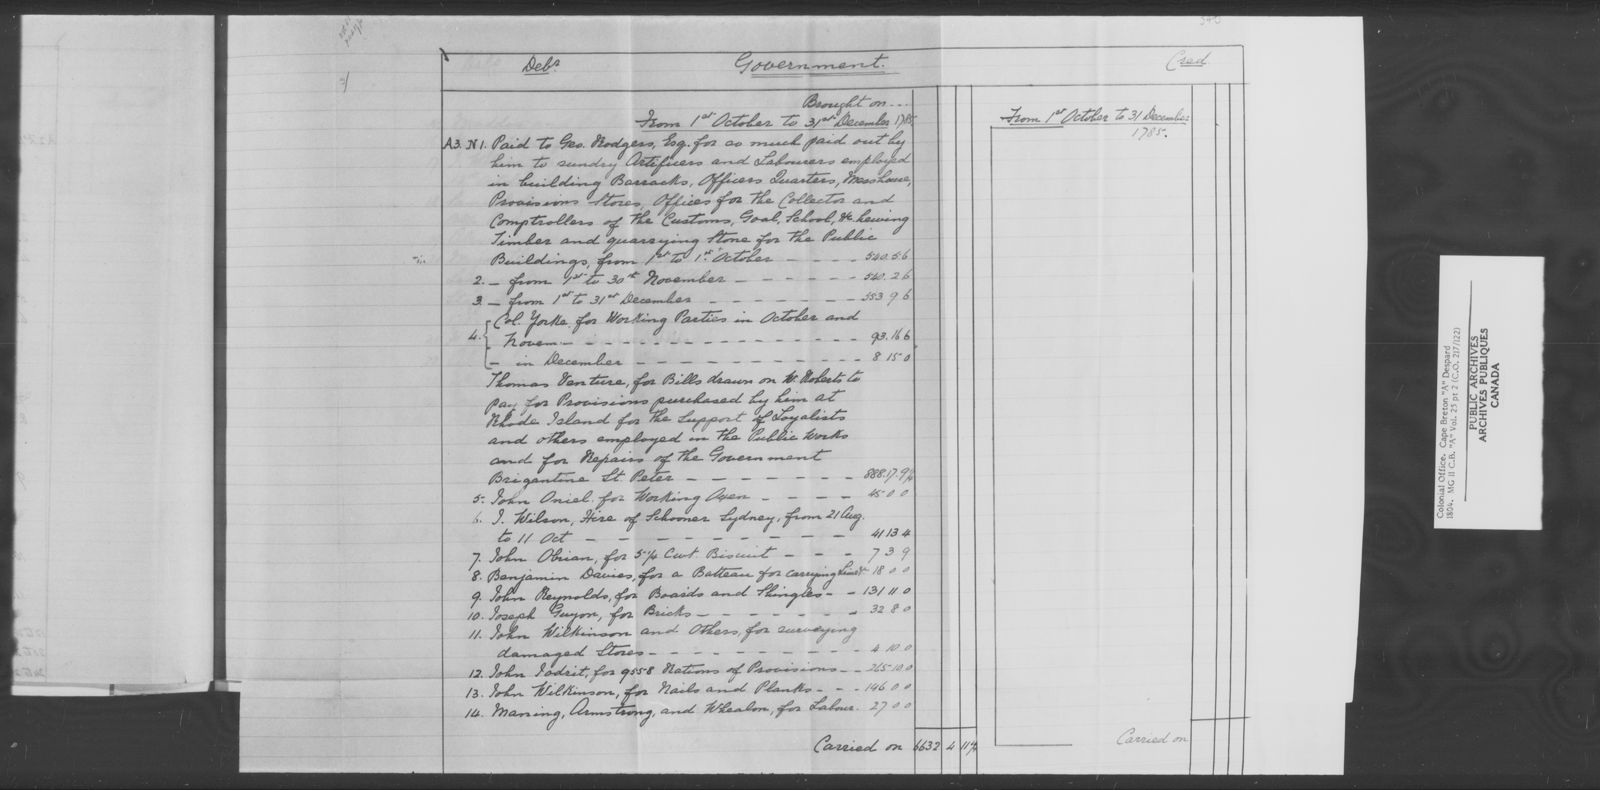 340
Debr. Government. Cred.
Brought on ...
From 1st October to 31st December 1785.
A3. N1. Paid to Geo. Rodgers, Esq. for as much paid out by
him to sundry Artificers and Labourers employed
in building Barracks, Officers Quarters, Messhouse,
Provisions Stores, Offices for the Collector and
Comptrollers of the Customs, Goal, School, &c hewing
Timber and quarrying Stone for the Public
Buildings, from 1st to 1st October - - - - 540.5.6
2. - from 1st to 30th November - - - - - 540.2.6
3. - from 1st to 31st December - - - - - - 553 9 6
4. Col. Yorke for Working Parties in October and
Novem - - - - - - - - - - - - - - 93.16 6
- in December - - - - - - - - - - - - 8 15 0
Thomas Venture, for Bills drawn on W. Roberts to
pay for Provisions purchased by him at
Rhode Island for the support of Loyalists
and others employed in the Public Works
and for Repairs of the Government
Brigantine St. Peter - - - - - - - 888.17.9¼
5. John Oniel. for Working Oxen - - - - 45 0 0
6. I. Wilson, Hire of Schooner Sydney, from 21 Aug.
to 11 Oct - - - - - - - - - - - 41 13 4
7. John Obrian, for 5¼ Cwt. Biscuit - - - 7 3 9
8. Benjamin Davies, for a Batteau for carrying 18 0 0
9. John Reynolds, for Boards and Shingles - - 131 11 0
10. Joseph Guyon, for Bricks - - - - - - - 32 8 0
11. John Wilkinson and Others, for surveying
damaged Stores - - - - - - - - - - 4 10 0
12. John Jodrit, for 9558 Rations of Provisions - - 265 10 0
13. John Wilkinson, for Nails and Planks - - - 146 0 0
14. Manning, Armstrong, and Whealon, for Labour. 27 0 0
Carried on 6632 4 11¼
From 1st October to 31 December
1785.
Carried on
Colonial Office. Cape Breton "A" Despard
1804. MG 11 C.B. "A" Vol. 25 pt 2 (C.O. 217/122)
PUBLIC ARCHIVES
ARCHIVES PUBLIQUES
CANADA